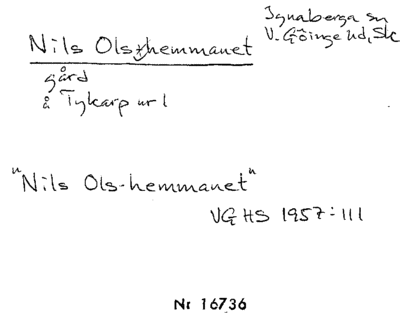 Ignaberga sn
V. Göinge hd, Sk
Nils Ols-hemmanet
gård
å Tykarp nr 1
"Nils Ols-hemmanet"
VGHS 1957:111
Nr 16736